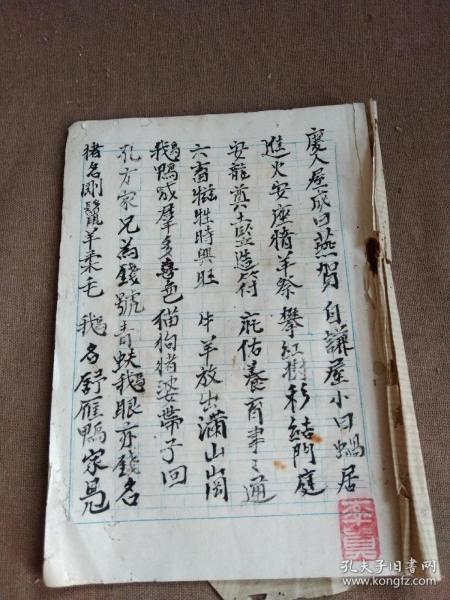 慶人居成曰燕賀 自謙屋小曰蝸居
進火安座猪羊祭 攀紅樹彩結門庭
安龍奠土盤造符 庇佑養育事〻通
六畜犧牲時興旺 牛羊放出滿山崗
鵝鴨成羣多喜色 猫狗猪婆帶子回
孔方家兄為錢號 青蚨鵝眼亦錢名
猪名剛鬣羊柔毛 鵝名舒雁鴨家鳧
孔夫子旧书网
www.kongfz.com